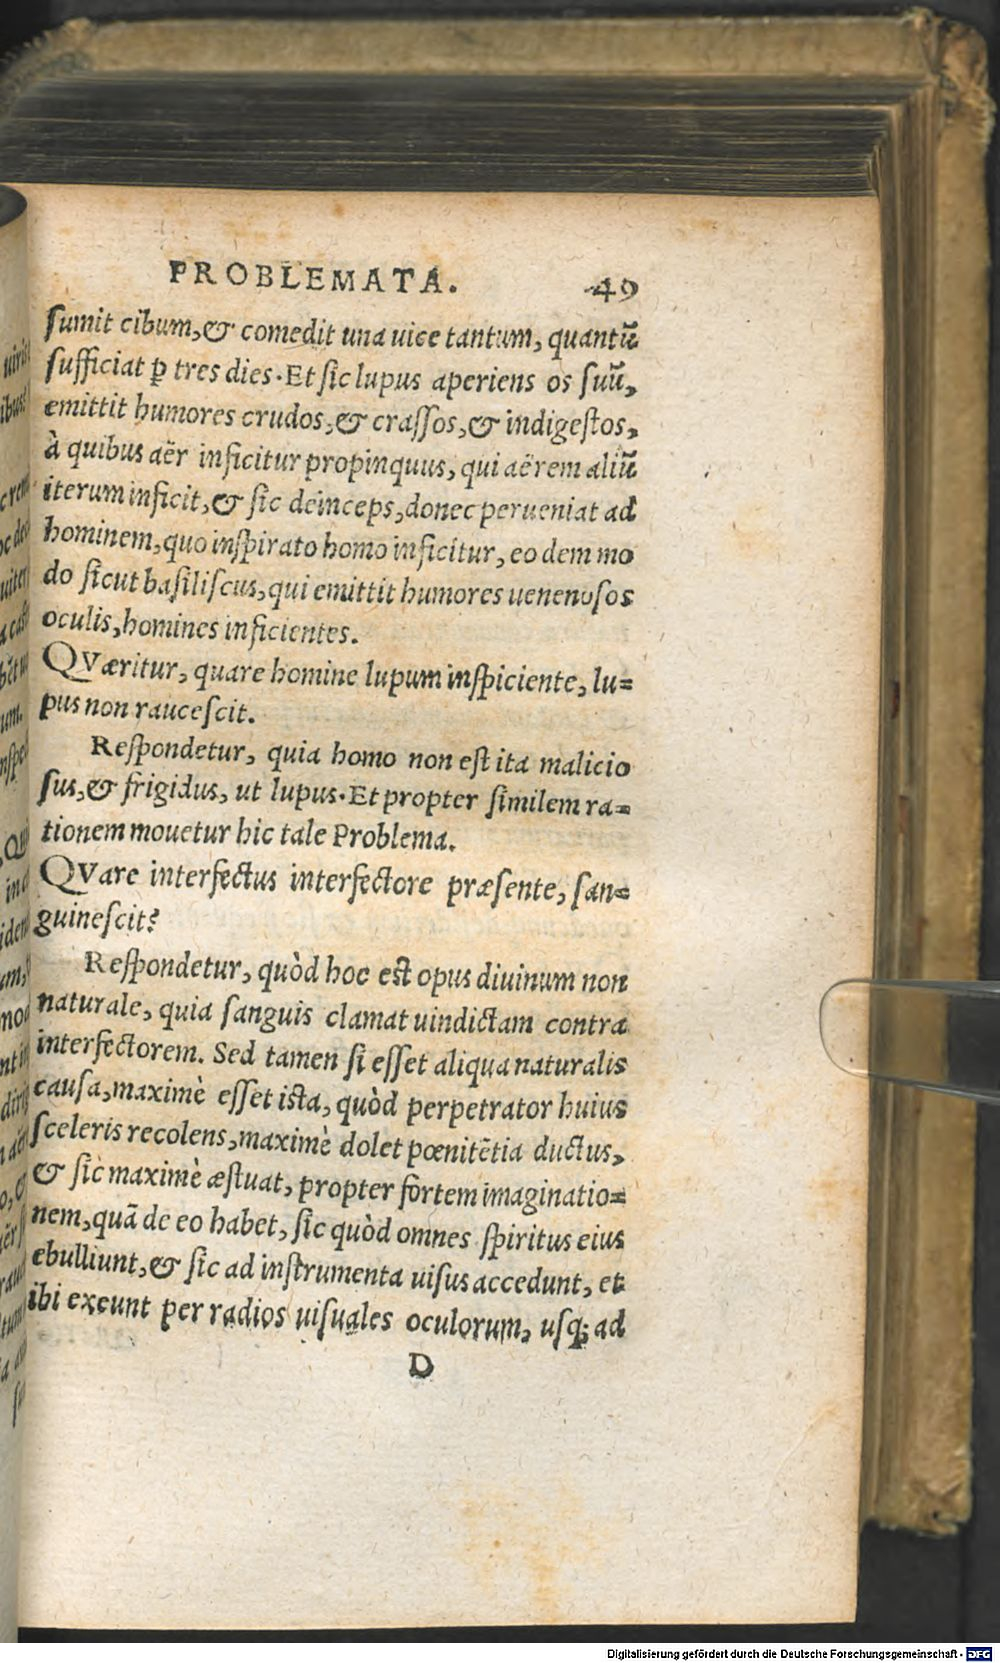 PROBLEMATA. 49
ſumit cibum, & comedit una uice tantum, quantũ
ſufficiat ꝑ tres dies. Et ſic lupus aperiens os ſuũ,
emittit humores crudos, & craſſos, & indigeſtos,
à quibus aër inficitur propinquus, qui aërem aliũ
iterum inficit, & ſic deinceps, donec perueniat ad
hominem, quo inſpirato homo inficitur, eo dem mo
do ſicut baſiliſcus, qui emittit humores uenenoſos
oculis, homines inficientes.
QVæritur, quare homine lupum inſpiciente, lu=
pus non raucescit.
Reſpondetur, quia homo non eſt ita malicio
ſus, & frigidus, ut lupus. Et propter ſimilem ra=
tionem mouetur hic tale Problema.
QVare interfectus interfectore præſente, ſan=
guineſcit?
Reſpondetur, quòd hoc est opus diuinum non
naturale, quia ſanguis clamat uindictam contra
interfectorem. Sed tamen ſi eſſet aliqua naturalis
cauſa, maximè eſſet iſta, quòd perpetrator huius
ſceleris recolens, maximè dolet pœnitẽtia ductus,
& ſic maximè æſtuat, propter fortem imaginatio=
nem, quã de eo habet, ſic quòd omnes ſpiritus eius
ebulliunt, & ſic ad inſtrumenta uiſus accedunt, et
ibi exeunt per radios uiſuales oculorum, uſq; ad
D
Digitalisierung gefördert durch die Deutsche Forschungsgemeinschaft - DFG